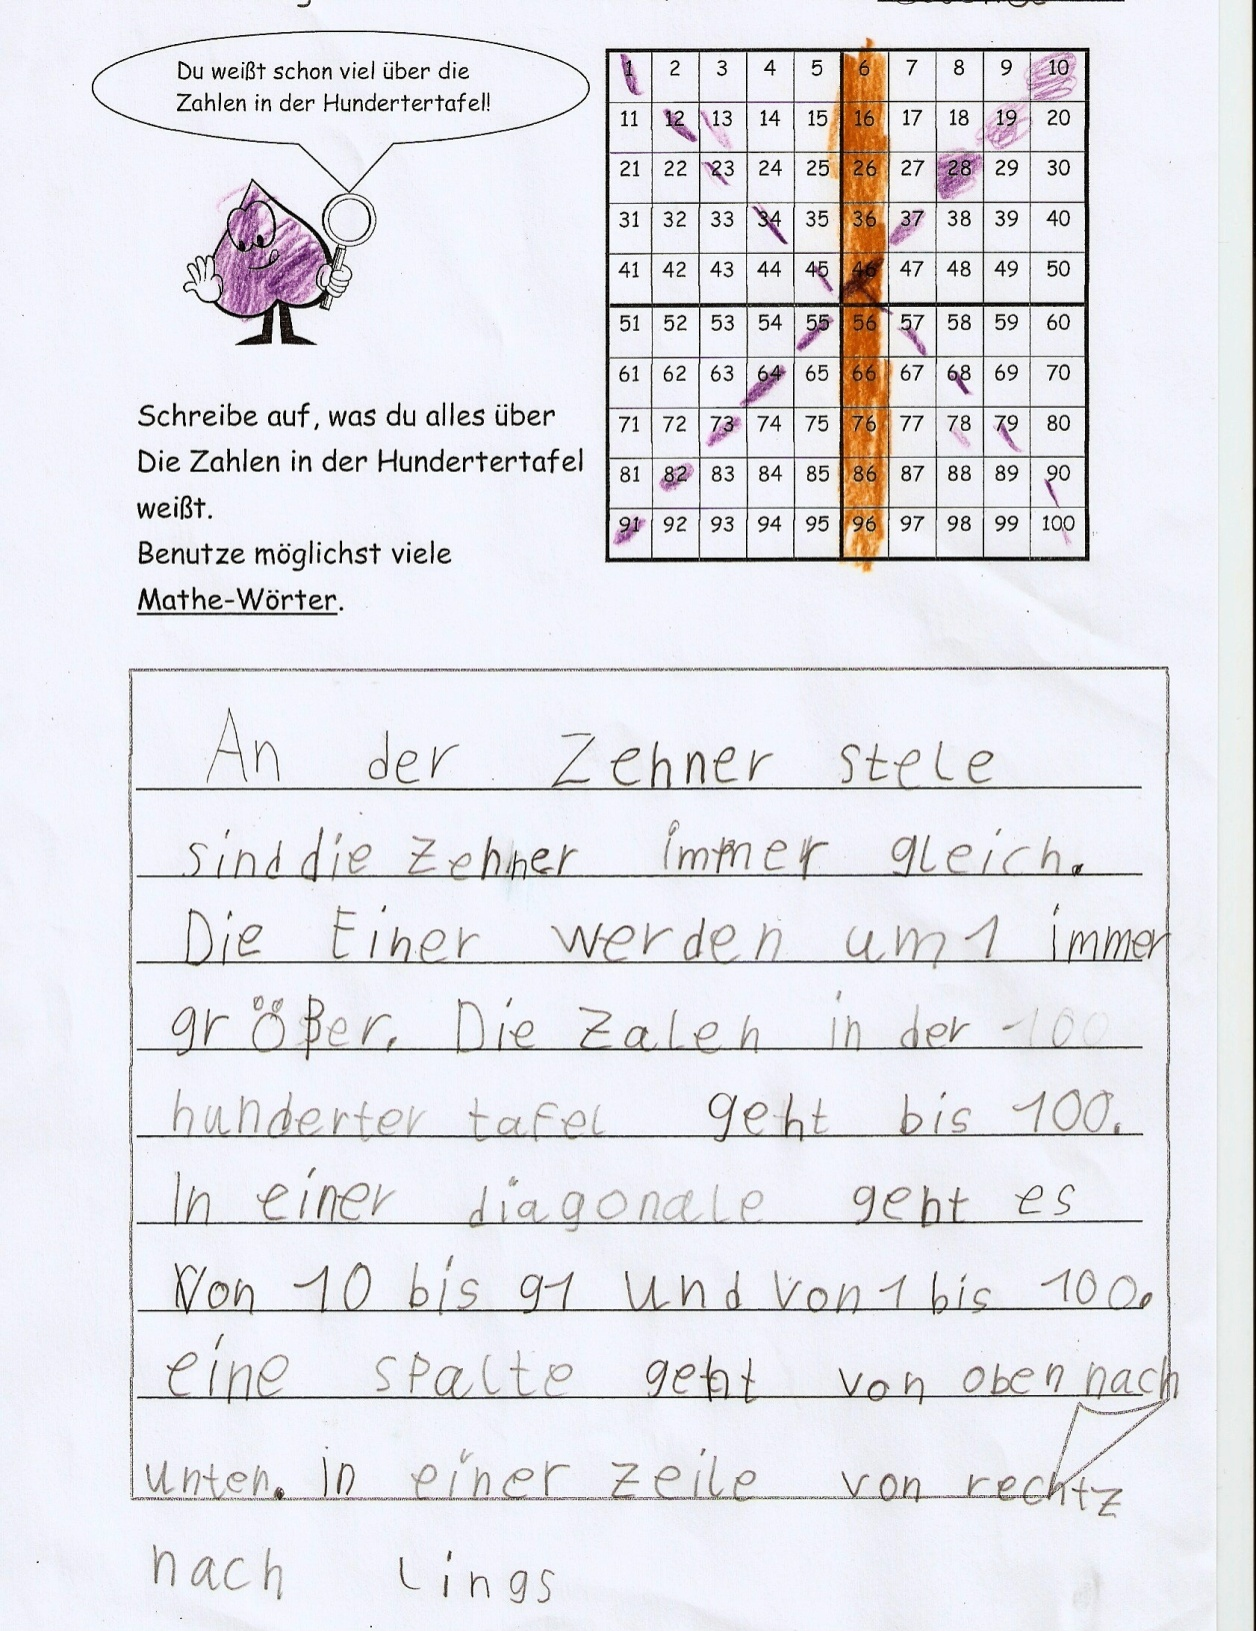 Du weißt schon viel über die
Zahlen in der Hundertertafel!
1 2 3 4 5 6 7 8 9 10
11 12 13 14 15 16 17 18 19 20
21 22 23 24 25 26 27 28 29 30
31 32 33 34 35 36 37 38 39 40
41 42 43 44 45 46 47 48 49 50
51 52 53 54 55 56 57 58 59 60
61 62 63 64 65 66 67 68 69 70
71 72 73 74 75 76 77 78 79 80
81 82 83 84 85 86 87 88 89 90
91 92 93 94 95 96 97 98 99 100
Schreibe auf, was du alles über
Die Zahlen in der Hundertertafel
weißt.
Benutze möglichst viele
Mathe-Wörter.
An der Zehner stele
sind die Zehner immer gleich.
Die Einer werden um 1 immer
größer. Die Zalen in der 100
hunderter tafel geht bis 100.
In einer diagonale geht es
Von 10 bis 91 und von 1 bis 100.
eine spalte geht von oben nach
unten. in einer zeile von rechtz
nach lings